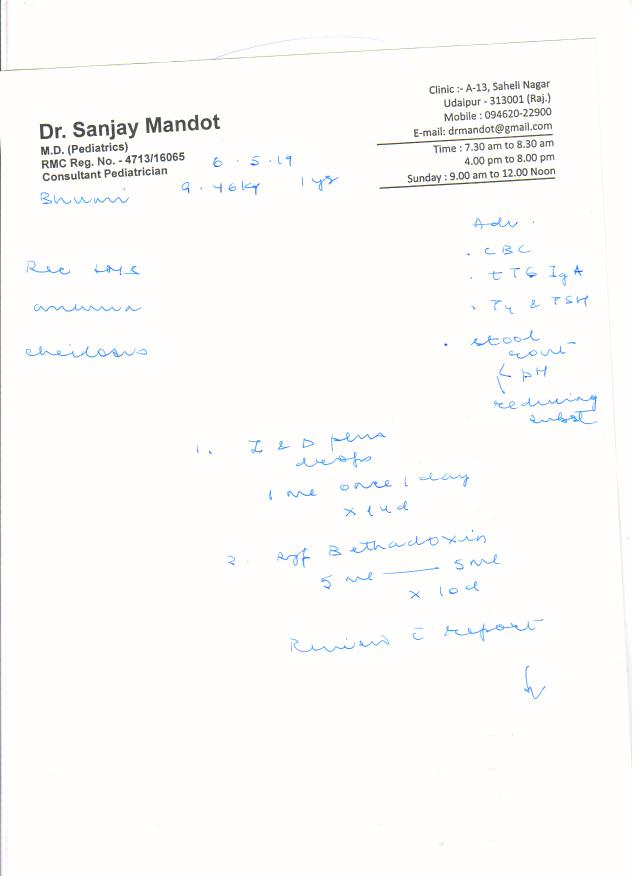 Dr. Sanjay Mandot
M.D. (Pediatrics)
RMC Reg. No. - 4713/16065
Consultant Pediatrician
Clinic :- A-13, Saheli Nagar
Udaipur - 313001 (Raj.)
Mobile : 094620-22900
E-mail: drmandot@gmail.com
Time : 7.30 am to 8.30 am
4.00 pm to 8.00 pm
Sunday : 9.00 am to 12.00 Noon
6 . 5 . 19
Bhumi 9.46kg 1 yr
Rec
anemia
cheilosis
Adv .
. CBC
. tTG IgA
. T4 & TSH
. stool
pH
reducing
subst
1. & D plus
drops
1 ml once / day
x 14d
2. syp Bethadoxin
5 ml — 5 ml
x 10d
Review c̄ report